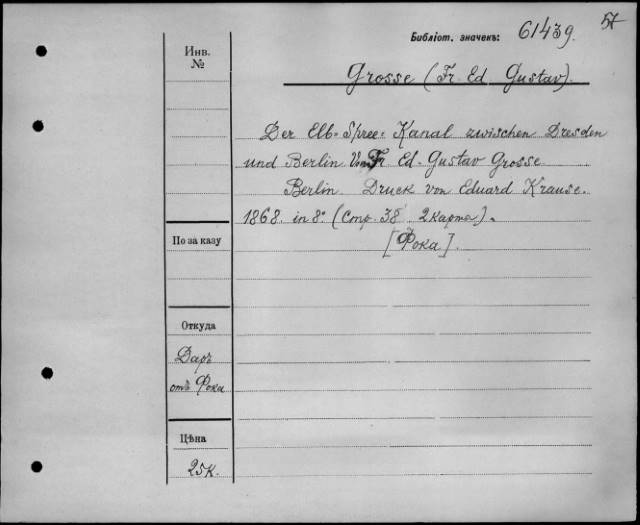 57
Библіот. значекъ: 61439.
Инв.
№
Grosse (Fr. Ed. Gustav).
Der Elb-Spree-Kanal zwischen Dresden
und Berlin Von Fr. Ed. Gustav Grosse
Berlin. Druck von Eduard Krause.
1868. in 8°. (Стр. 38 2 карта).
[Фока].
По за казу
Откуда
Даръ
отъ Фока
Цѣна
25к.